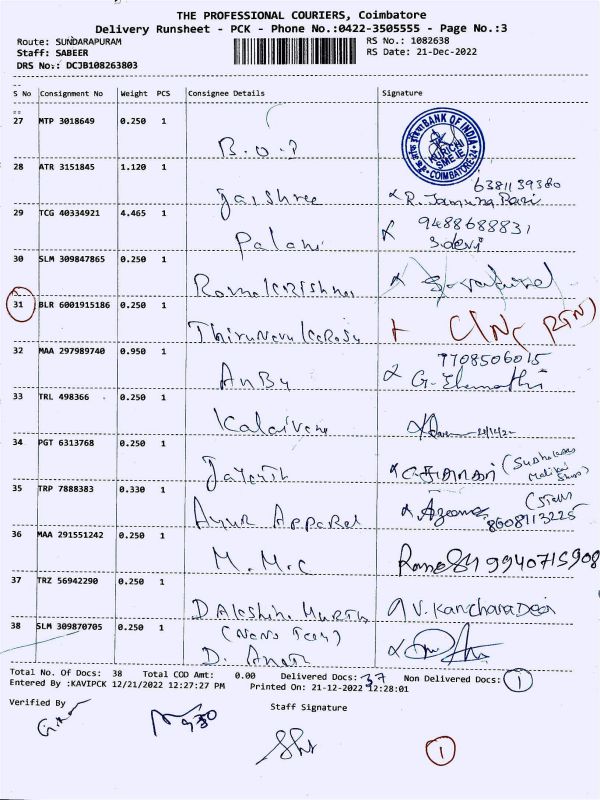 THE PROFESSIONAL COURIERS, Coimbatore
Delivery Runsheet - PCK - Phone No.:0422-3505555 - Page No.:3
Route: SUNDARAPURAM RS No.: 1082638
Staff: SABEER RS Date: 21-Dec-2022
DRS No.: DCJB108263803
S No Consignment No Weight PCS Consignee Details Signature
27 MTP 3018649 0.250 1
BANK OF INDIA
KURICHI
SME IE
COIMBATORE-24
B.O.I
28 ATR 3151845 1.120 1
6381139380
Jaishree R. Jamuna Rani
29 TCG 40334921 4.465 1
9488688831
Palani S.devi
30 SLM 309847865 0.250 1
Ramakrishnan
31 BLR 6001915186 0.250 1
Thirunavukarasu (RTN)
32 MAA 297989740 0.950 1
7708506015
Anbu G. Elamathi
33 TRL 498366 0.250 1
Kalaivani
34 PGT 6313768 0.250 1
35 TRP 7888383 0.330 1
Ayur Apparel 8608113225
36 MAA 291551242 0.250 1
M.M.C 9940715908
37 TRZ 56942290 0.250 1
V. Kanchana Devi
38 SLM 309870705 0.250 1
Total No. Of Docs: 38 Total COD Amt: 0.00 Delivered Docs: 37 Non Delivered Docs: 1
Entered By :KAVIPCK 12/21/2022 12:27:27 PM Printed On: 21-12-2022 12:28:01
Verified By Staff Signature
1